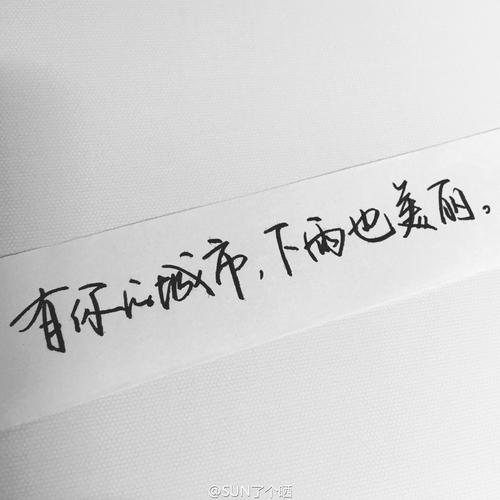 有你的城市，下雨也美丽。
@SUN了个晒